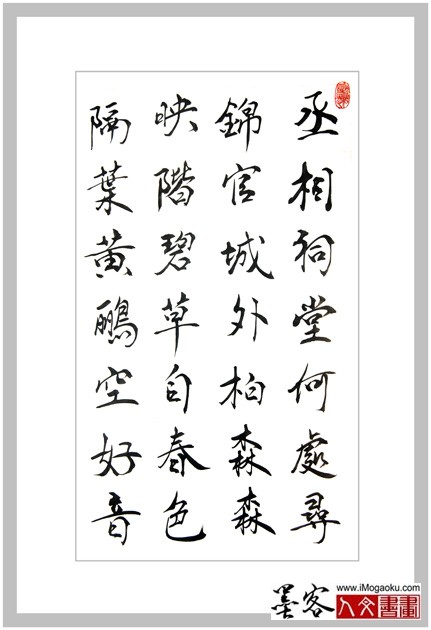 丞相祠堂何處尋
錦官城外柏森森
映階碧草自春色
隔葉黄鸝空好音
墨客
www.iMogaoku.com
人文書畫